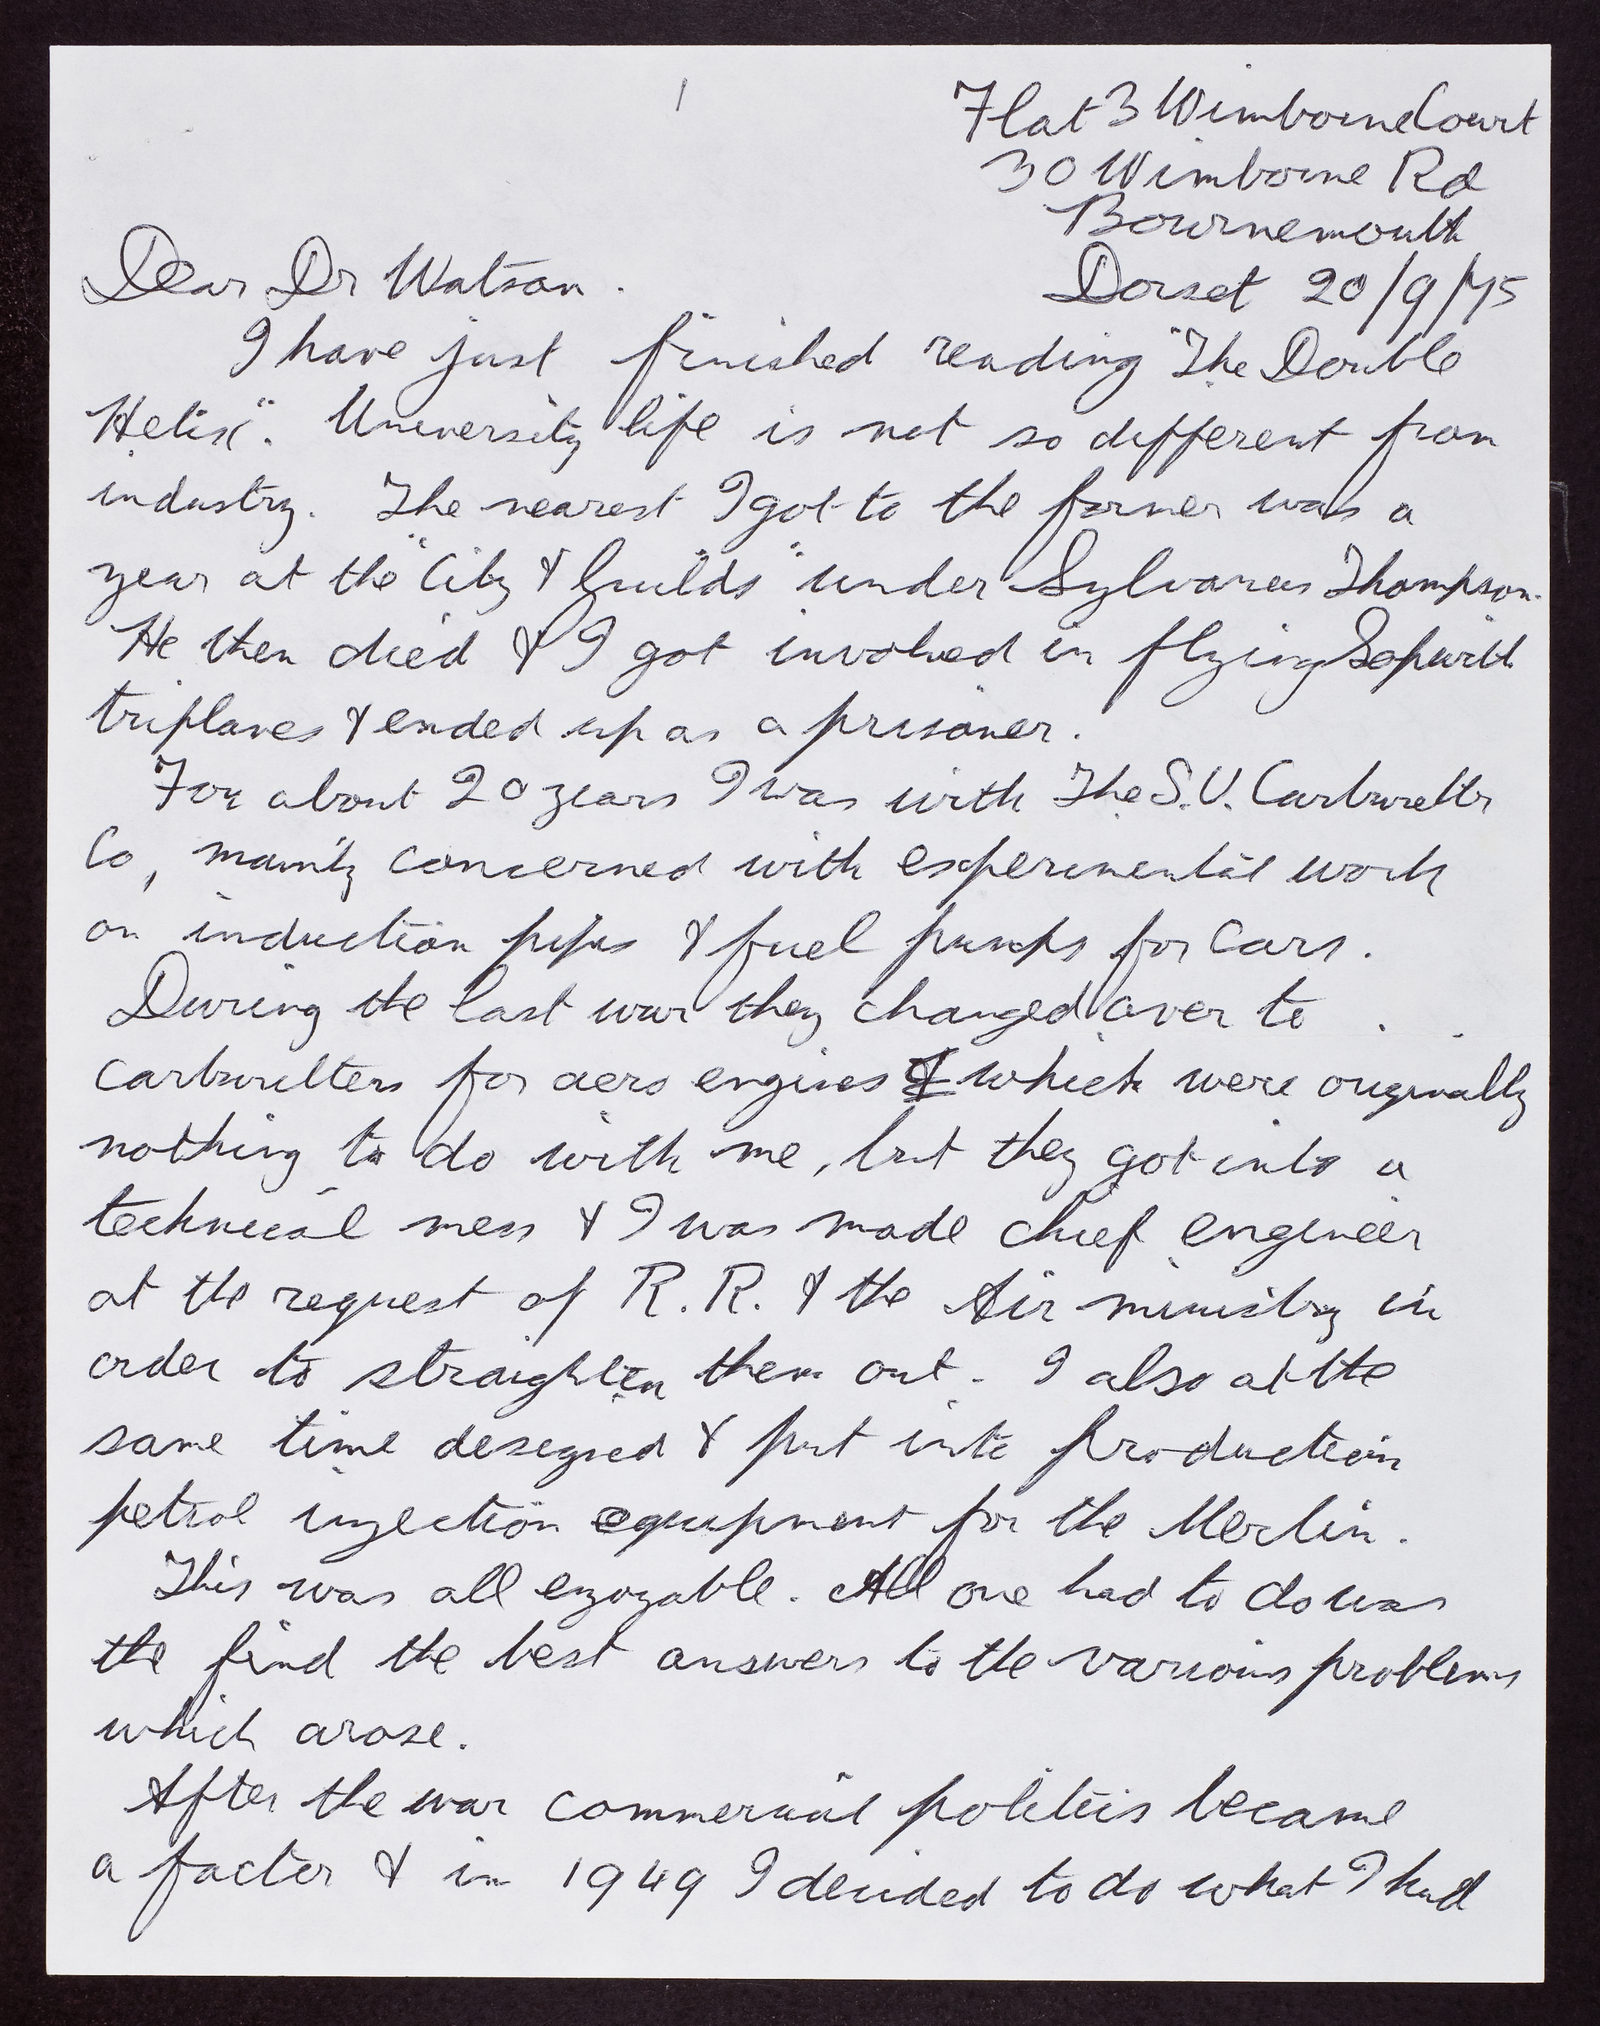 1
Flat 3 Wimborne Court
30 Wimborne Rd
Bournemouth
Dorset 20/9/75
Dear Dr Watson.
I have just finished reading "The Double
Helix". University life is not so different from
industry. The nearest I got to the former was a
year at the "City & Guilds" under Sylvanus Thompson.
He then died & I got involved in flying Sopwith
triplanes & ended up as a prisoner.
For about 20 years I was with The S.U. Carburettr
Co, mainly concerned with experimental work
on induction pipes & fuel pumps for cars.
During the last war they changed over to
carburetters for aero engines which were originally
nothing to do with me, but they got into a
technical mess & I was made chief engineer
at the request of R.R. & the Air ministry in
order to straighten them out. I also at the
same time designed & put into production
petrol injection equipment for the Merlin.
This was all enjoyable. All one had to do was
the find the best answers to the various problems
which arose.
After the war commercial politics became
a factor & in 1949 I decided to do what I had